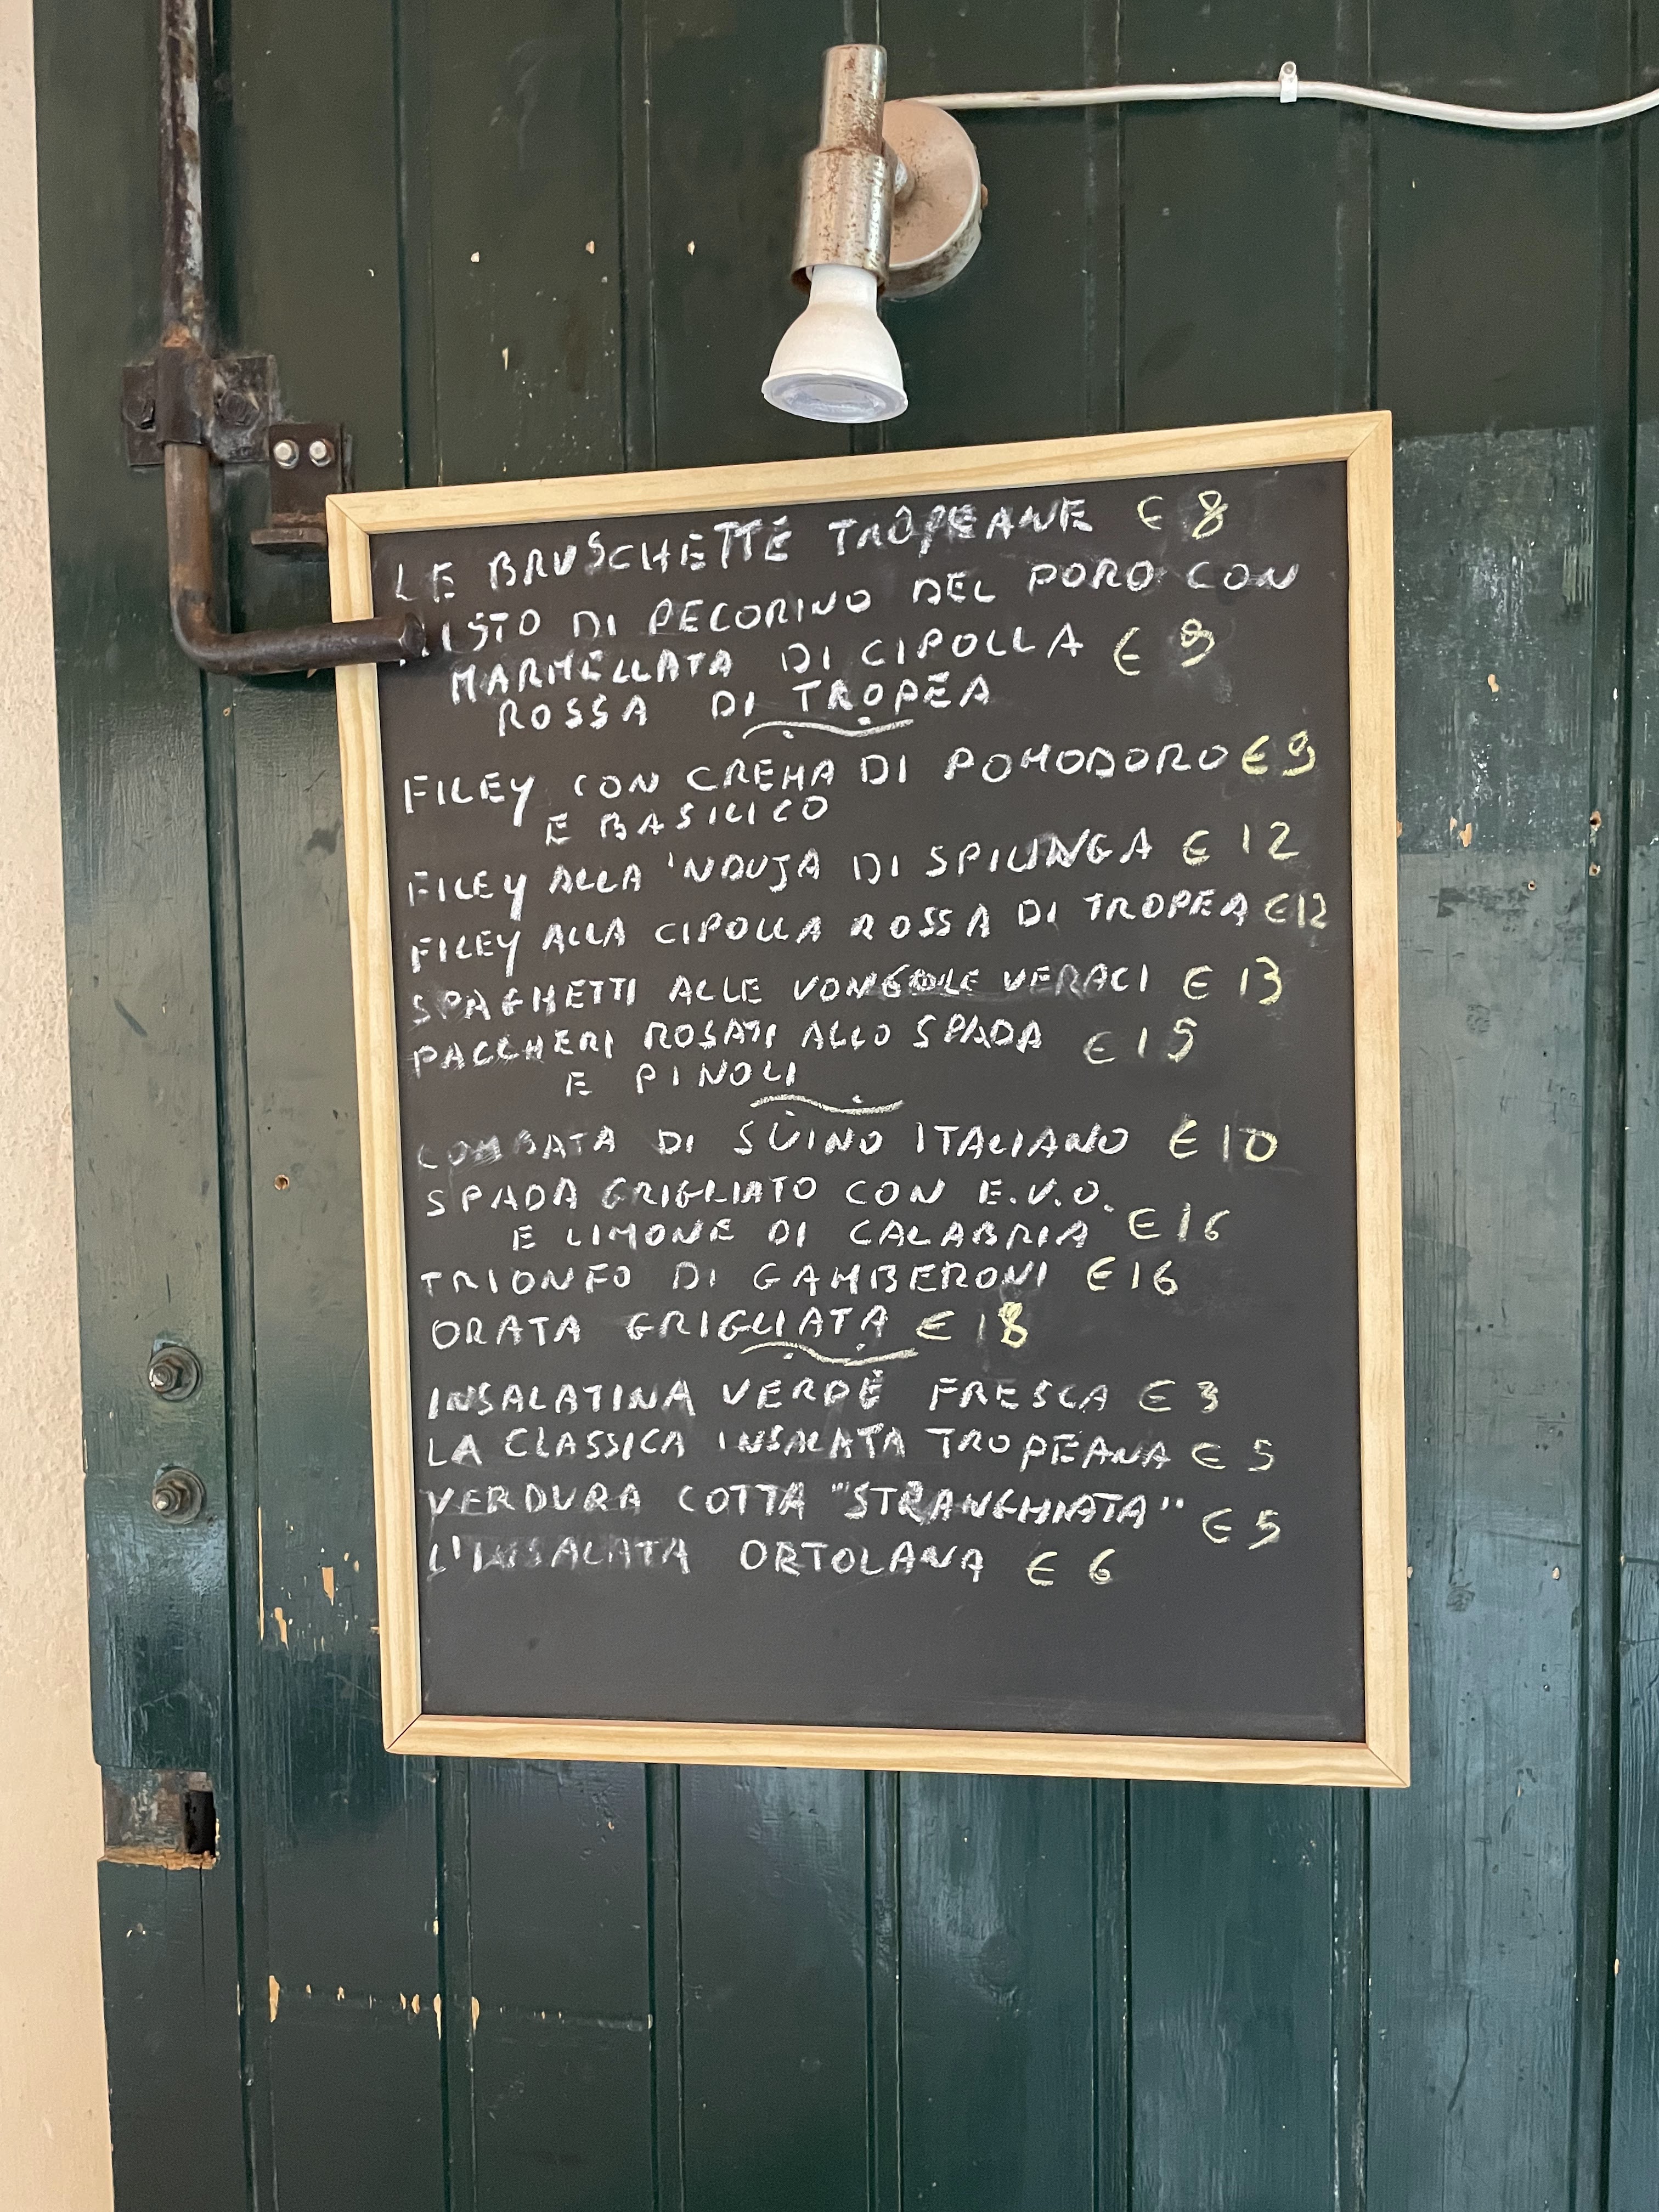 LE BRUSCHETTE TROPEANE € 8
MISTO DI PECORINO DEL PORO CON
MARMELLATA DI CIPOLLA € 9
ROSSA DI TROPEA
FILEY CON CREMA DI POMODORO € 9
E BASILICO
FILEY ALLA 'NDUJA DI SPILINGA € 12
FILEY ALLA CIPOLLA ROSSA DI TROPEA € 12
SPAGHETTI ALLE VONGOLE VERACI € 13
PACCHERI ROSATI ALLO SPADA € 15
E PINOLI
LOMBATA DI SUINO ITALIANO € 10
SPADA GRIGLIATO CON E.V.O.
E LIMONE DI CALABRIA € 16
TRIONFO DI GAMBERONI € 16
ORATA GRIGLIATA € 18
INSALATINA VERDE FRESCA € 3
LA CLASSICA INSALATA TROPEANA € 5
VERDURA COTTA "STRANGHIATA" € 5
L'INSALATA ORTOLANA € 6